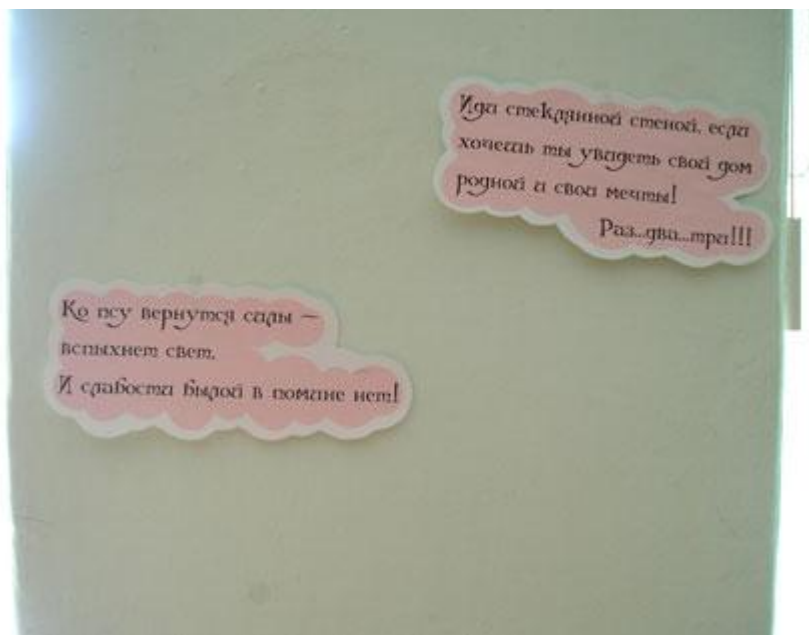 Иди стеклянной стеной, если
хочешь ты увидеть свой дом
родной и свои мечты!
Раз...два...три!!!
Ко псу вернутся силы –
вспыхнет свет,
И слабости былой в помине нет!